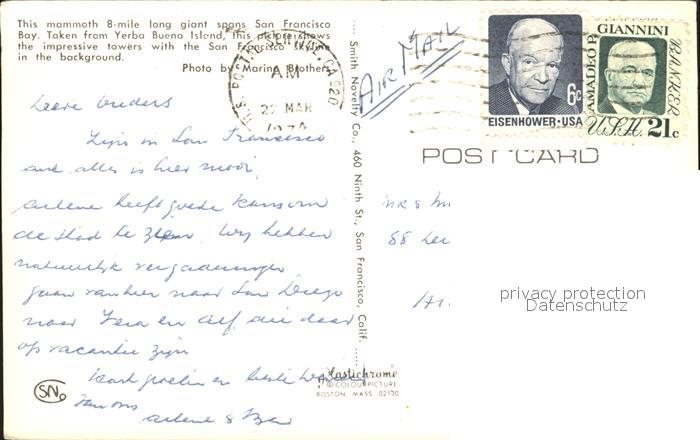 This mammoth 8-mile long giant spans San Francisco
Bay. Taken from Yerba Buena Island, this picture shows
the impressive towers with the San Francisco skyline
in the background.
Photo by Marino Brothers
AM
22 MAR
AIR MAIL
6c
EISENHOWER·USA
AMADEO P.
GIANNINI
BANKER
U.S.A. 21c
POST CARD
Lieve ouders
Zijn in San Francisco
and alles is hier mooi,
arlene heeft goede kans om
de stad te zien. Wij hebben
natuurlijk vergaderingen,
gaan van hier naar San Diego
naar en Alf die daar
op vacantie zijn
groeten en beste
van ons
arlene &
Smith Novelty Co., 460 Ninth St., San Francisco, Calif.
SN
Plastichrome
® COLOURPICTURE
BOSTON, MASS 02130
MR &
88
privacy protection
Datenschutz